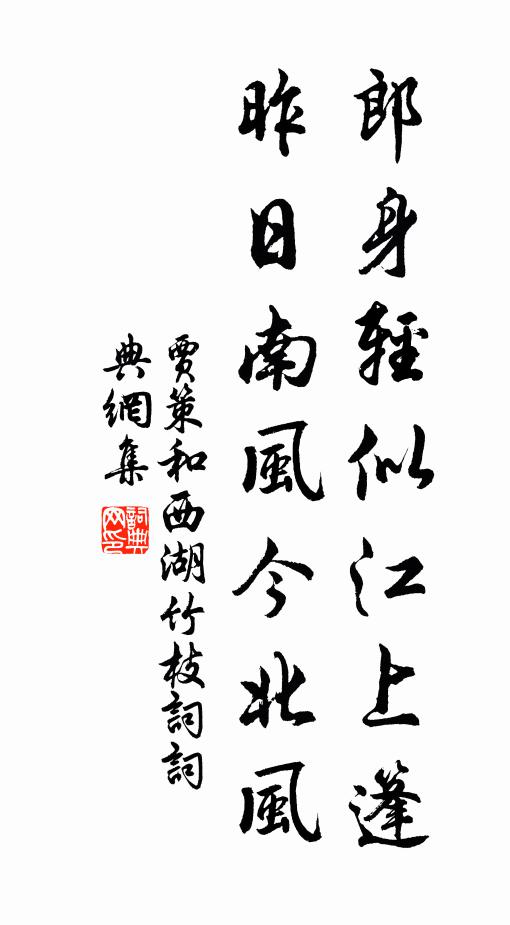 郎身輕似江上篷
昨日南風今北風
賈策和西湖竹枝詞詞
典網集
詞典網印